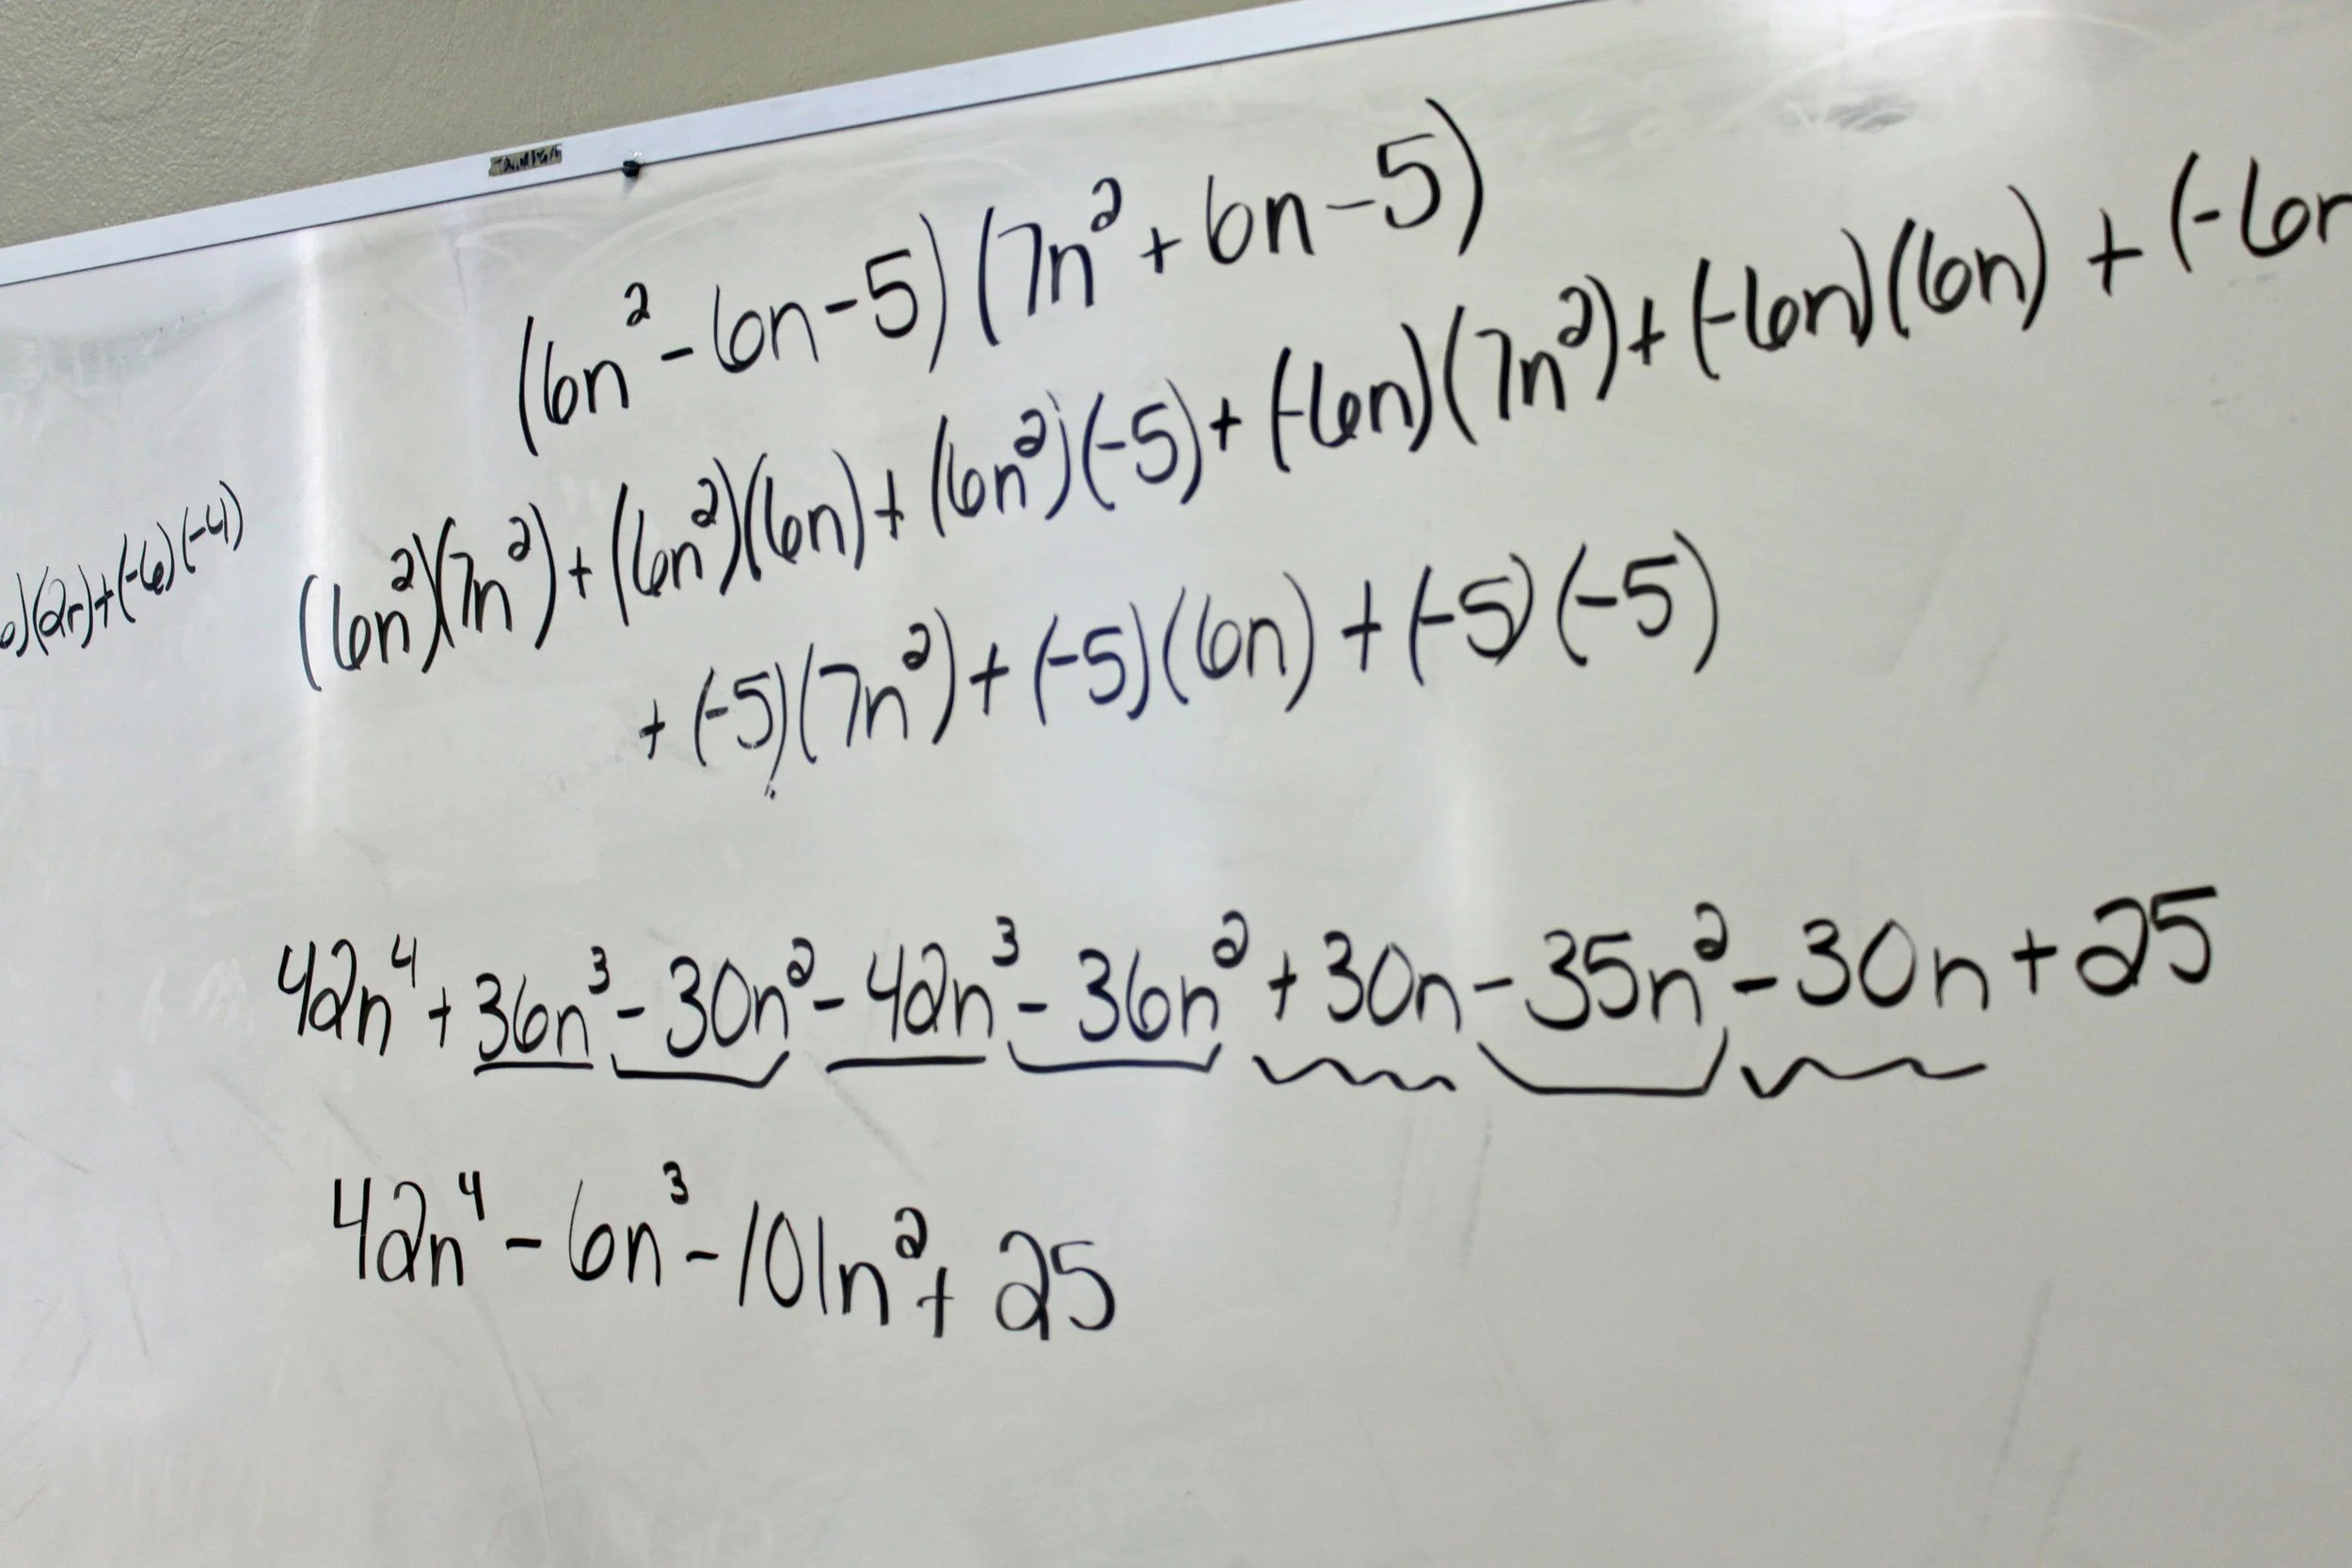 (6n² - 6n - 5)(7n² + 6n - 5)
(6n²)(7n²) + (6n²)(6n) + (6n²)(-5) + (-6n)(7n²) + (-6n)(6n) + (-6n
)(2n)+(-6)(-4)
+ (-5)(7n²) + (-5)(6n) + (-5)(-5)
42n⁴ + 36n³ - 30n² - 42n³ - 36n² + 30n - 35n² - 30n + 25
42n⁴ - 6n³ - 101n² + 25